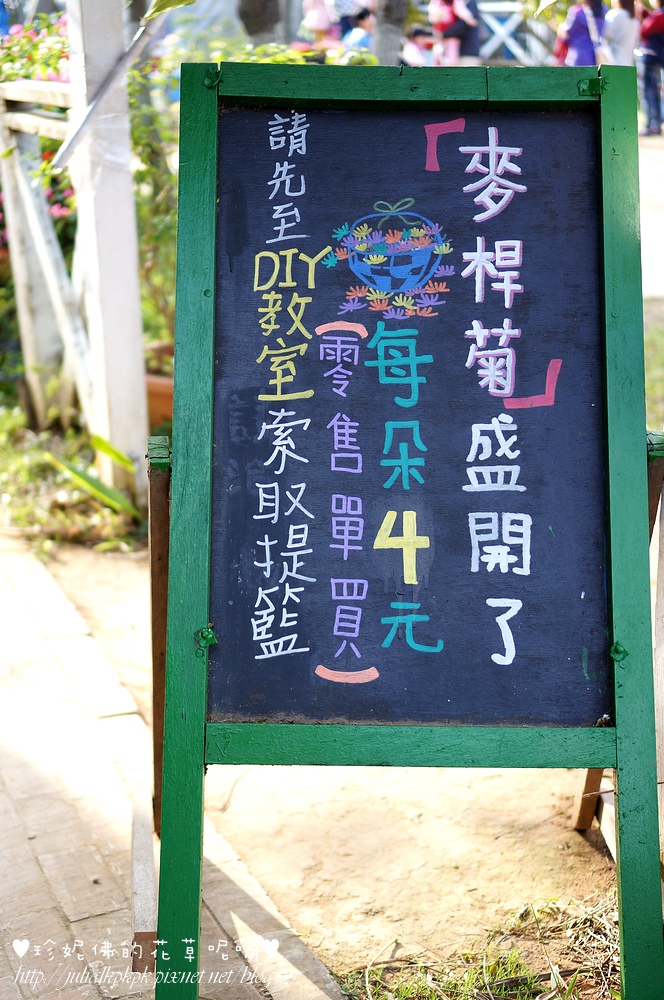 「麥桿菊」盛開了
每朵4元
(零售單買)
請先至DIY教室索取提籃
♥珍妮佛的花草呢喃♥